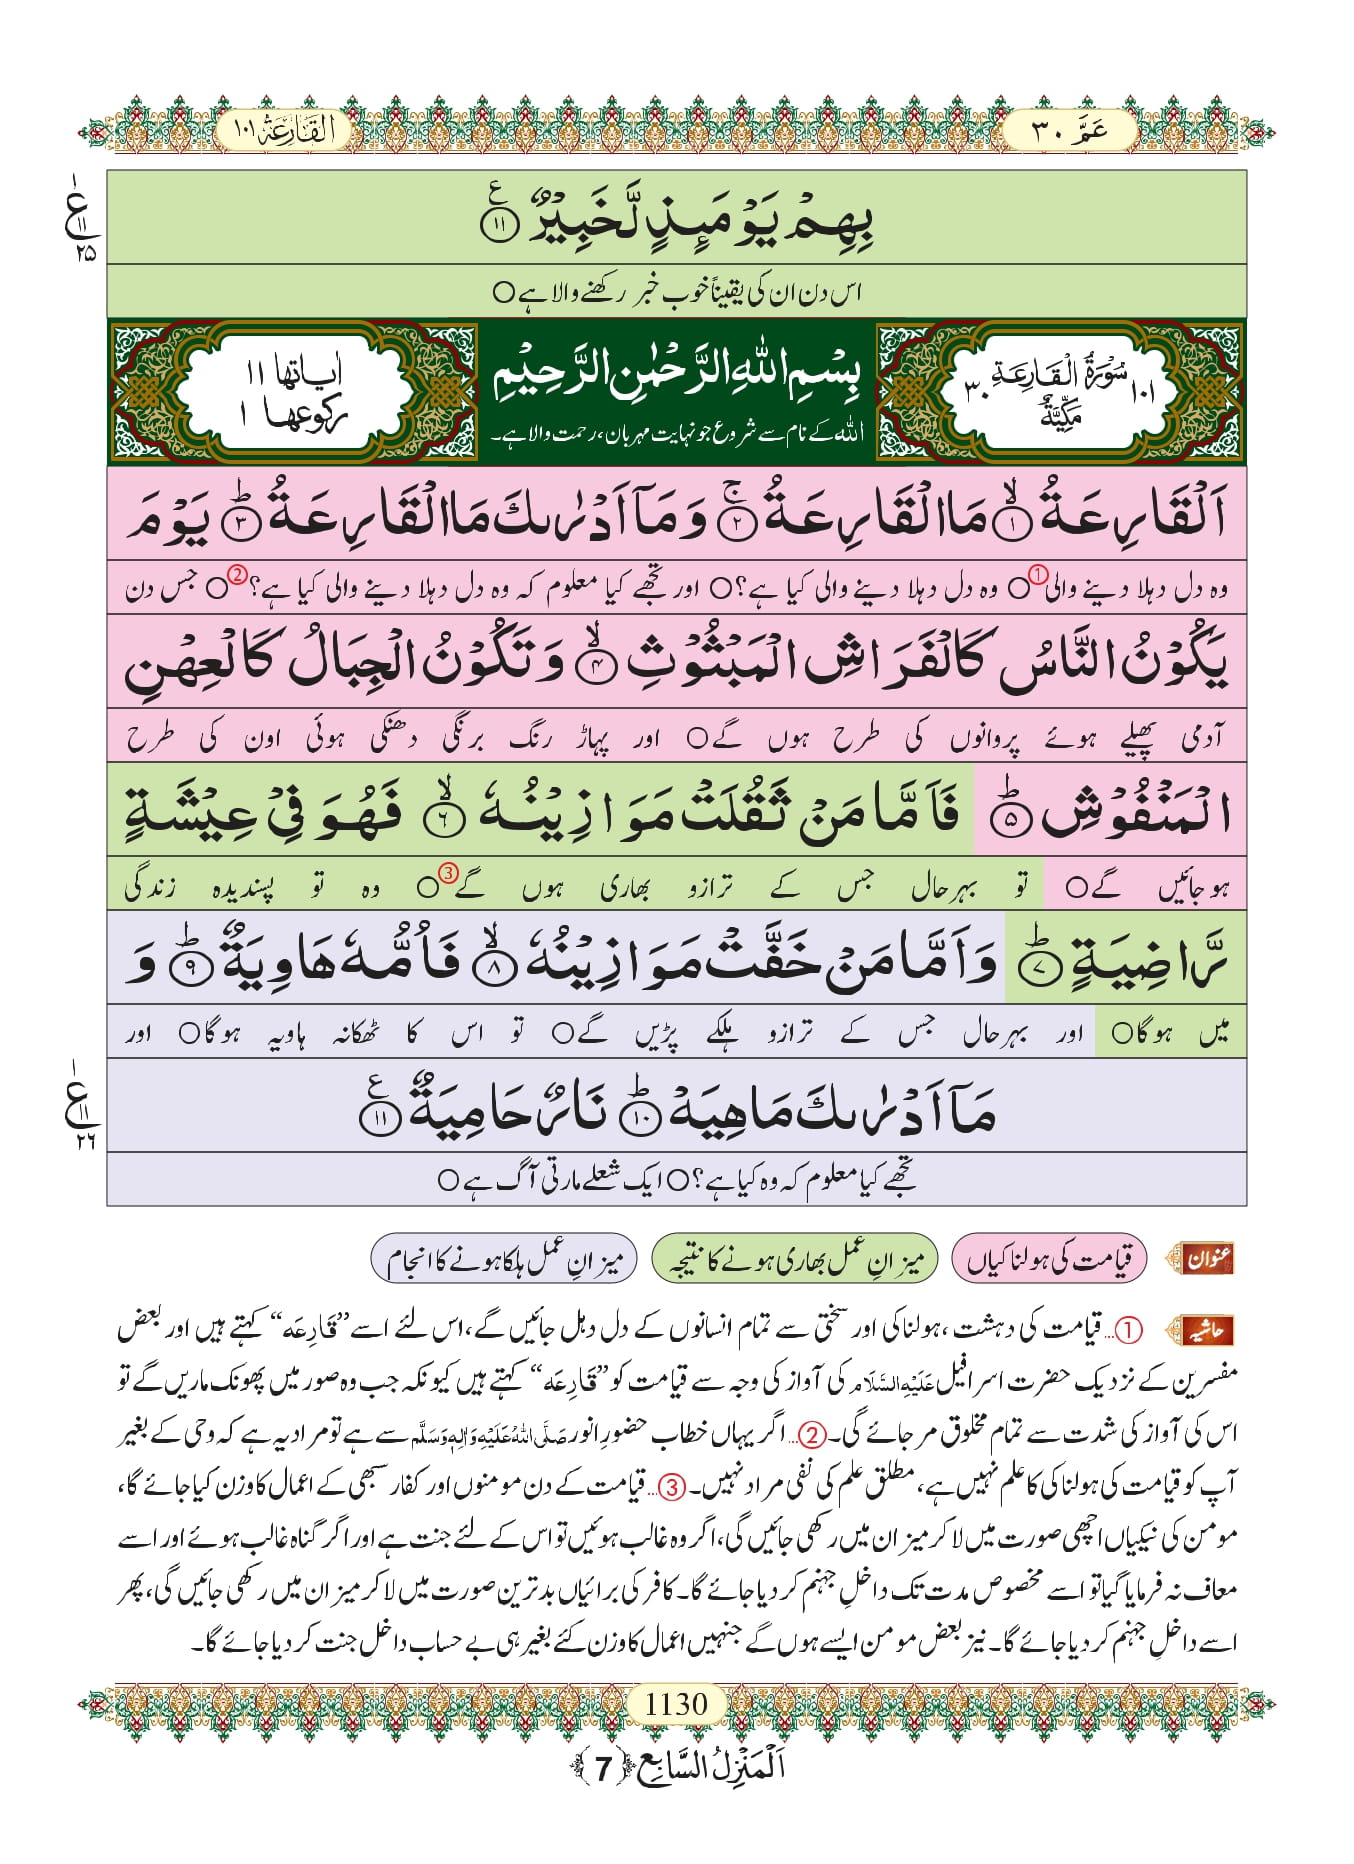 عَمَّ ٣٠
اَلْقَارِعَة ١٠١
بِهِمْ يَوْمَىِٕذٍ لَّخَبِیْرٌ۠ ﴿۱۱﴾ ع
ع ۱ ۱۱ ۲۵
اس دن ان کی یقیناً خوب خبر رکھنے والا ہے○
۱۰۱ سُوْرَةُ الْقَارِعَةِ مَكِّیَّةٌ ۳۰
بِسْمِ اللّٰهِ الرَّحْمٰنِ الرَّحِیْمِ
اللّٰہ کے نام سے شروع جو نہایت مہربان، رحمت والا ہے۔
اٰیاتها ۱۱
رکوعها ۱
اَلْقَارِعَةُۙ ﴿۱﴾ مَا الْقَارِعَةُۚ ﴿۲﴾ وَ مَاۤ اَدْرٰىكَ مَا الْقَارِعَةُؕ ﴿۳﴾ یَوْمَ
وہ دل دہلا دینے والی①○ وہ دل دہلا دینے والی کیا ہے؟○ اور تجھے کیا معلوم کہ وہ دل دہلا دینے والی کیا ہے؟②○ جس دن
یَكُوْنُ النَّاسُ كَالْفَرَاشِ الْمَبْثُوْثِۙ ﴿۴﴾ وَ تَكُوْنُ الْجِبَالُ كَالْعِهْنِ
آدمی پھیلے ہوئے پروانوں کی طرح ہوں گے○ اور پہاڑ رنگ برنگی دھنکی ہوئی اون کی طرح
الْمَنْفُوْشِؕ ﴿۵﴾ فَاَمَّا مَنْ ثَقُلَتْ مَوَازِیْنُهٗۙ ﴿۶﴾ فَهُوَ فِیْ عِیْشَةٍ
ہو جائیں گے○ تو بہرحال جس کے ترازو بھاری ہوں گے③○ وہ تو پسندیدہ زندگی
رَّاضِیَةٍؕ ﴿۷﴾ وَ اَمَّا مَنْ خَفَّتْ مَوَازِیْنُهٗۙ ﴿۸﴾ فَاُمُّهٗ هَاوِیَةٌؕ ﴿۹﴾ وَ
میں ہوگا○ اور بہرحال جس کے ترازو ہلکے پڑیں گے○ تو اس کا ٹھکانہ ہاویہ ہوگا○ اور
مَاۤ اَدْرٰىكَ مَا هِیَهْؕ ﴿۱۰﴾ نَارٌ حَامِیَةٌ۠ ﴿۱۱﴾ ع
ع ۱ ۱۱ ۲۶
تجھے کیا معلوم کہ وہ کیا ہے؟○ ایک شعلے مارتی آگ ہے○
عنوان قیامت کی ہولناکیاں میزانِ عمل بھاری ہونے کا نتیجہ میزانِ عمل ہلکا ہونے کا انجام
حاشیہ ①... قیامت کی دہشت، ہولناکی اور سختی سے تمام انسانوں کے دل دہل جائیں گے، اس لئے اسے ”قَارِعَه“ کہتے ہیں اور بعض
مفسرین کے نزدیک حضرت اسرافیل عَلَیْهِ السَّلَام کی آواز کی وجہ سے قیامت کو ”قَارِعَه“ کہتے ہیں کیونکہ جب وہ صور میں پھونک ماریں گے تو
اس کی آواز کی شدت سے تمام مخلوق مر جائے گی۔ ②... اگر یہاں خطاب حضورِ انور صَلَّی اللّٰهُ عَلَیْهِ وَاٰلِهٖ وَسَلَّم سے ہے تو مراد یہ ہے کہ وحی کے بغیر
آپ کو قیامت کی ہولناکی کا علم نہیں ہے، مطلق علم کی نفی مراد نہیں۔ ③... قیامت کے دن مومنوں اور کفار سبھی کے اعمال کا وزن کیا جائے گا،
مومن کی نیکیاں اچھی صورت میں لا کر میزان میں رکھی جائیں گی، اگر وہ غالب ہوئیں تو اس کے لئے جنت ہے اور اگر گناہ غالب ہوئے اور اسے
معاف نہ فرمایا گیا تو اسے مخصوص مدت تک داخلِ جہنم کر دیا جائے گا۔ کافر کی برائیاں بدترین صورت میں لا کر میزان میں رکھی جائیں گی، پھر
اسے داخلِ جہنم کر دیا جائے گا۔ نیز بعض مومن ایسے ہوں گے جنہیں اعمال کا وزن کئے بغیر ہی بے حساب داخلِ جنت کر دیا جائے گا۔
1130
اَلْمَنْزِلُ السَّابِع ﴿7﴾